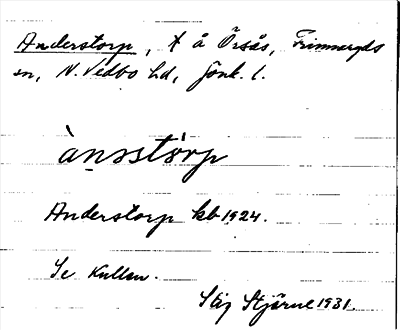 Anderstorp, × å Örsås, Frinnaryds
sn, N. Vedbo hd, Jönk. l.
ànsstörp
Anderstorp kb 1924.
Se Kullen.
Stig Stjärne 1931.